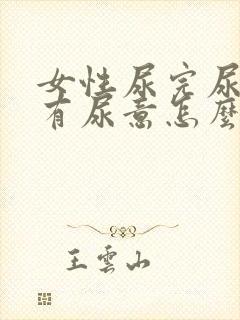 女性尿完尿
有尿意怎麼
王雲山